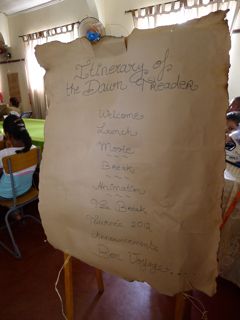 Itinerary of
the Dawn Treader
Welcome
Lunch
Movie
Break
Animation
Tea Break
2012
Announcements
Bon Voyage...